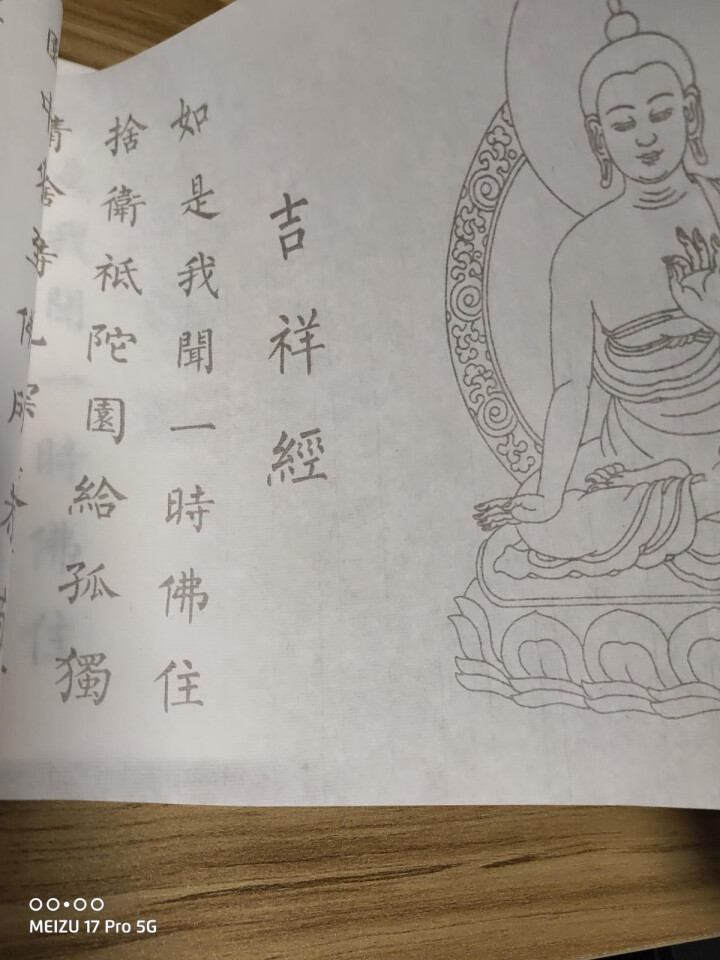 吉祥經
如是我聞一時佛住
捨衛祇陀園給孤獨
MEIZU 17 Pro 5G